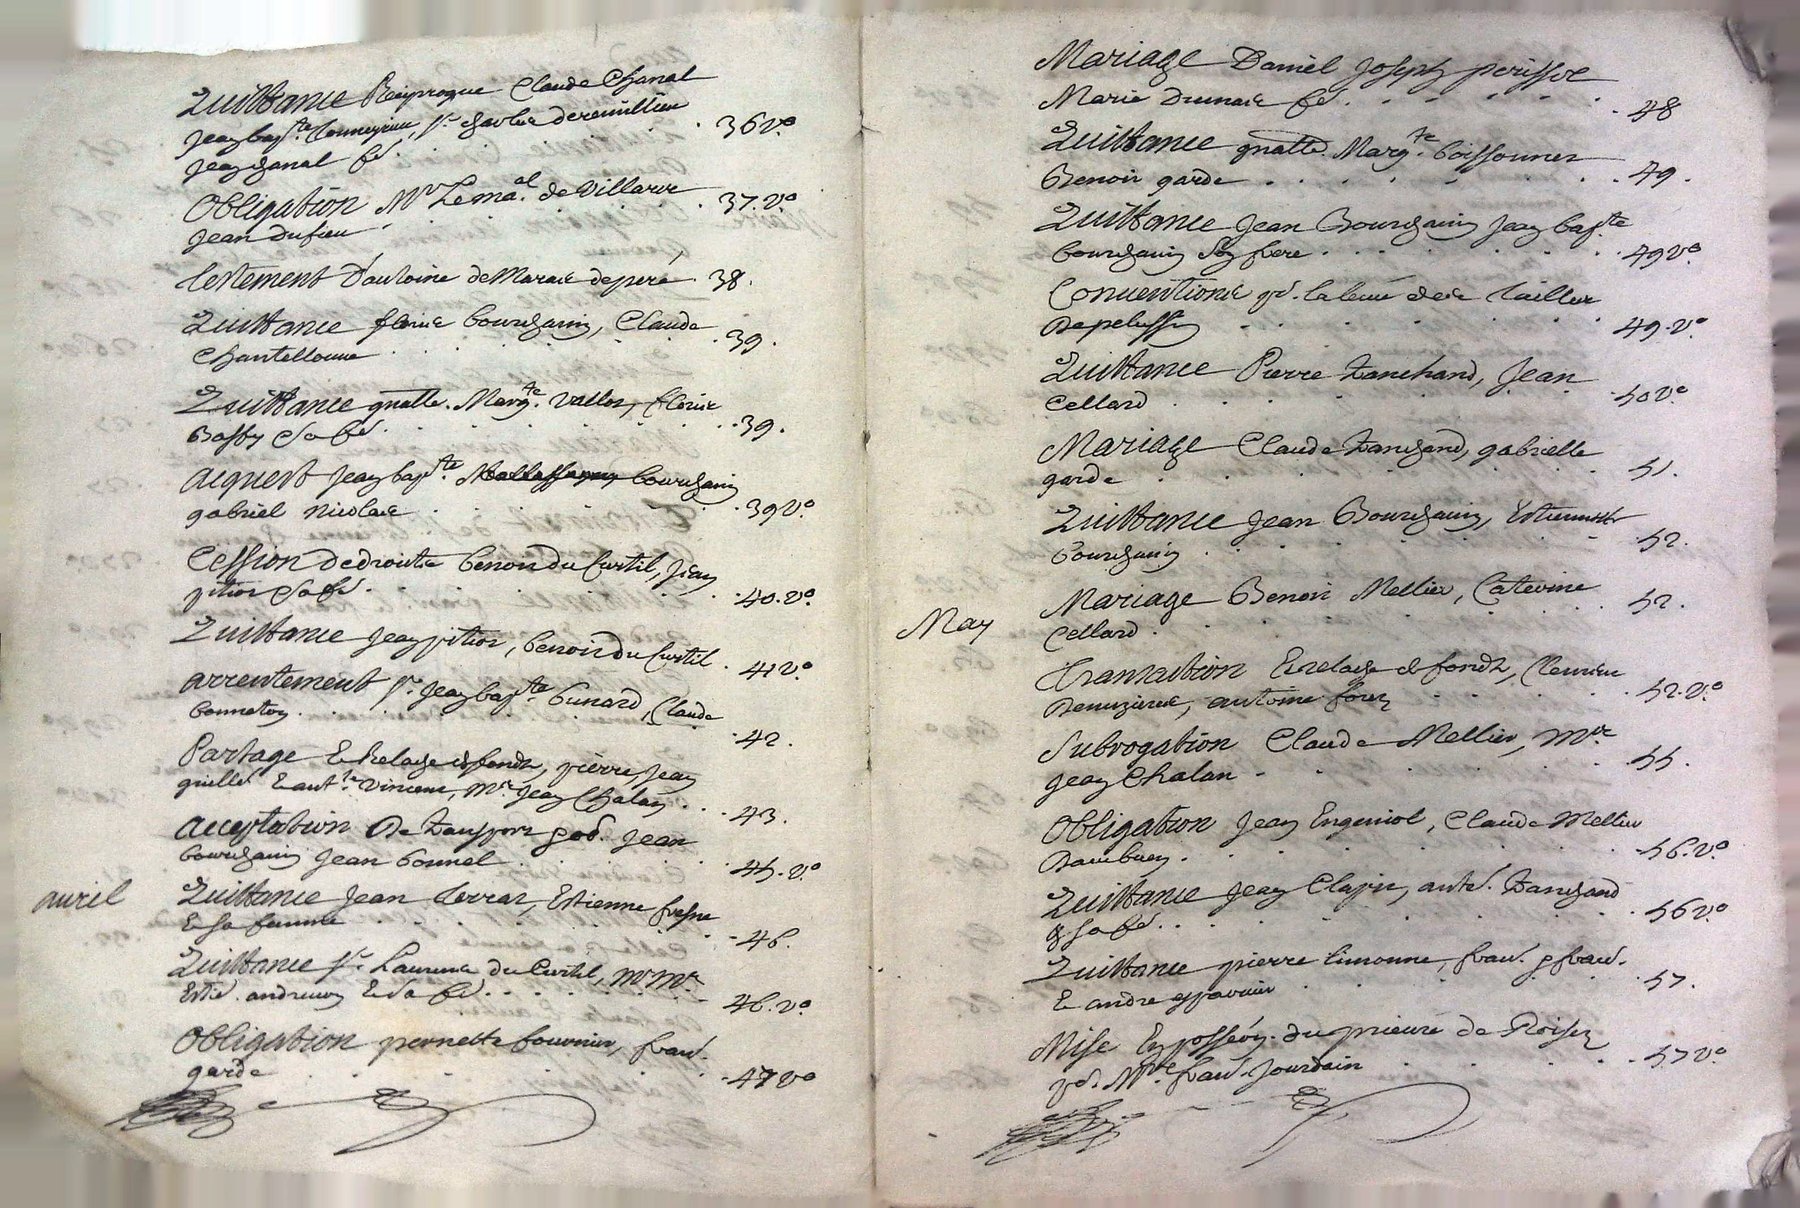 Quittance Reciproque Claude Chanal
Jean bapte. Conneyrieu, Sr. Charles deremillieu
Jean Chanal fd. 36 vo.
Obligation Mr Le mal. de Villarse
Jean dufieu 37. vo.
testement D'antoine de Marais de peré 38.
Quittance fleurie bourchanin, Claude
Chantellouue 39.
Quittance gnalle. Margte. Vallos, fleurie
Bassy Sa fe. 39.
acquest Jean bapte. bourchanin
gabriel nicolas 39 vo.
Cession de droitz benoit du Curtil, Jean
pitiot Sa fe. 40. vo.
Quittance Jean pitiot, benoit du Curtil 41 vo.
arrentement Sr. Jean bapte. bunard, Claude
bonneton 42.
Partage Relasche de fondz, pierre Jean
quillet & antte. Vincent, Mr. Jean Chalan 43.
acceptation De transport god. Jean
bourchanin Jean bonnel 45. vo
avril Quittance Jean terras, Estienne fresne
& Sa femme 46.
Quittance Sr. Laurence du Curtil, Mr Mre
Estie. andrieu & Sa fe. 46. vo.
Obligation pernette fournier, fran.
garde 47 vo
Mariage Daniel Joseph perissol
Marie Dumas fe. 48
Quittance gnalle. Margte. boissonner
Benoit garde 49.
Quittance Jean Bourchanin Jean bapte
bourchanin Son frere 49 vo.
Conuentions pr. la leué des tailles
De pelussin 49. vo.
Quittance Pierre Lanchand, Jean
Cellard 50 vo
Mariage Claude Lanchand, gabrielle
garde 51.
Quittance Jean Bourchanin, Estiennette
bourchanin 52.
May Mariage Benoit Mellier, Caterine
Cellard 52.
Transaction & relasche de fondz, fleurieu
Demizieux, antoine forez 52. vo
Subrogation Claude Mellier, Mre
Jean Chalan 55.
Obligation Jean Engeniol, Claude Mellier
56. vo
Quittance Jean Clapier, ante. Lanchand
& Sa fe. 56 vo
Quittance pierre limonne, fran. & fran.
& andre 57.
Mise En possion. du prieuré de Roisey
pr. Mre. fran. Jourdain 57 vo